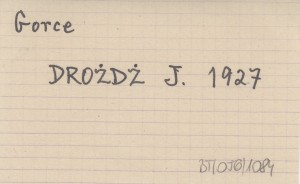 Gorce
DROŻDŻ J. 1927
BT/OTG/1084